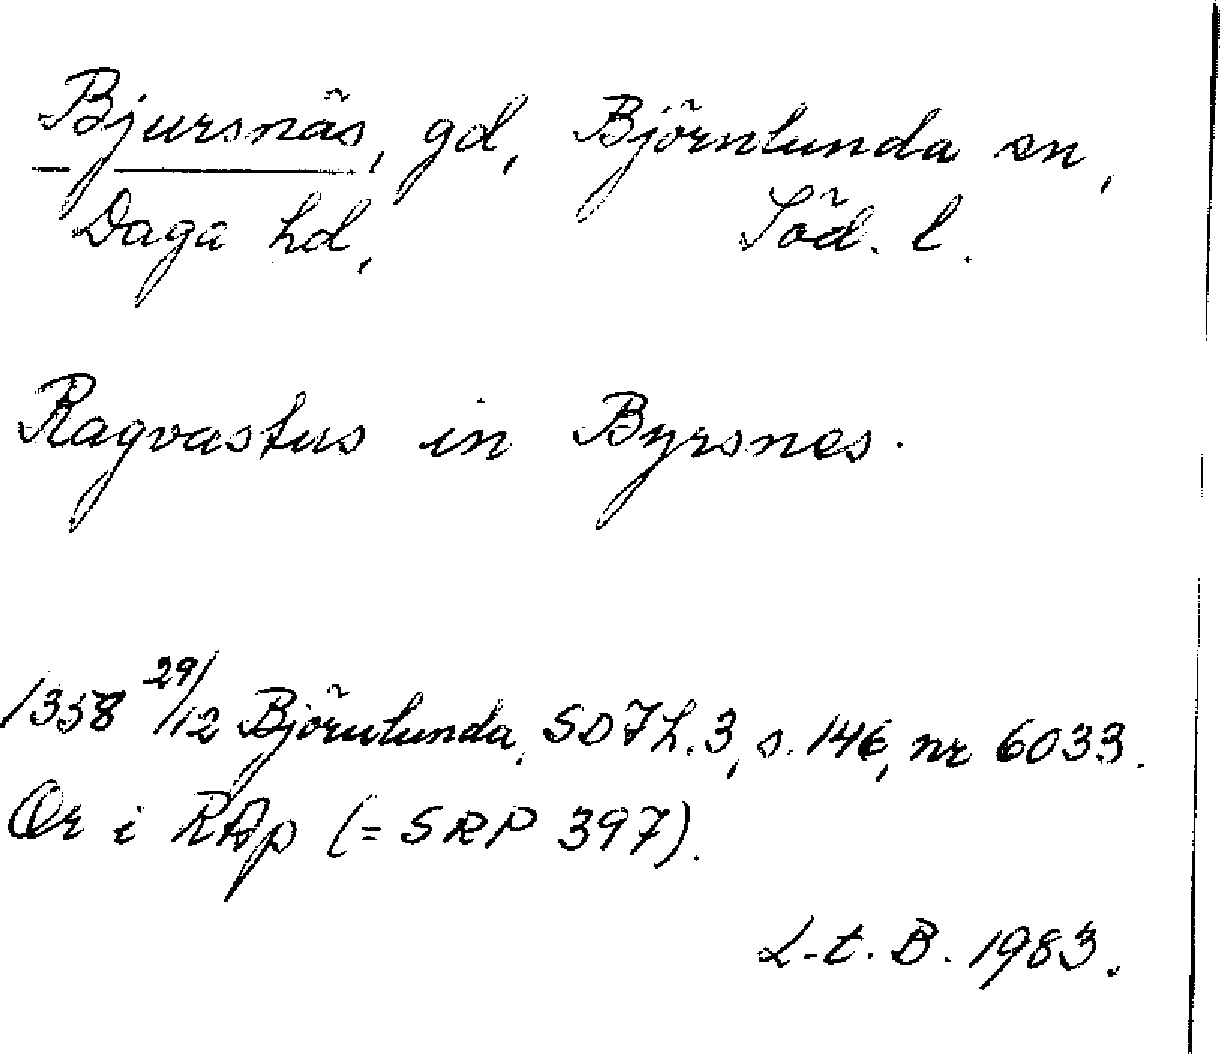 Bjursnäs, gd, Björnlunda sn,
Daga hd, Söd. l.
Ragvastus in Byrsnes.
1358 29/12 Björnlunda, SD 7 h. 3, s. 146, nr 6033.
Or i RAp (= SRP 397).
L-t. B. 1983.